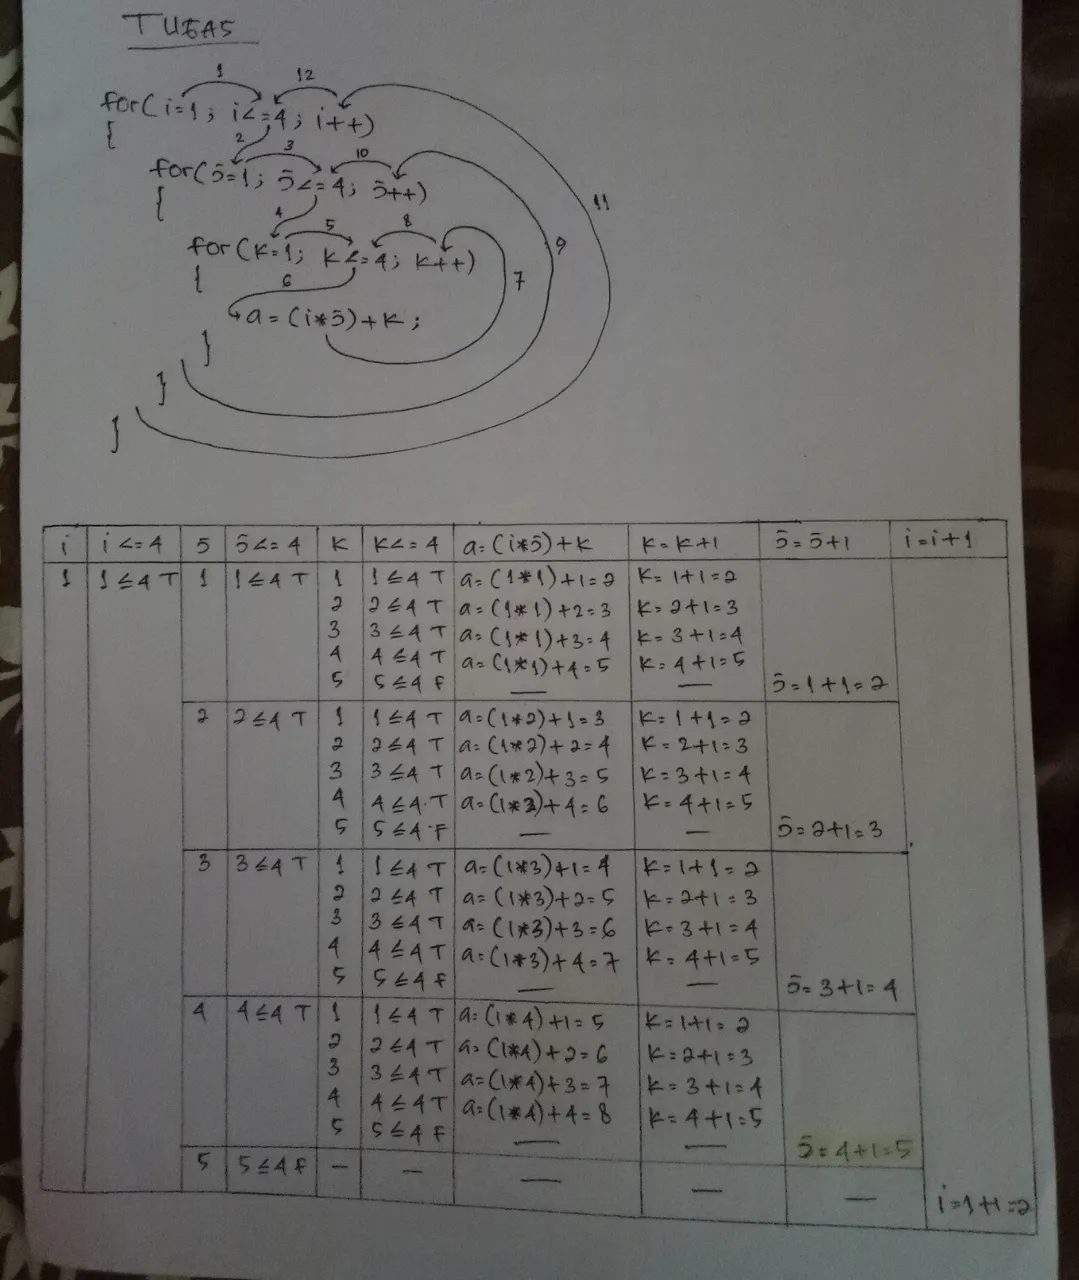 TUGAS
1 12
for(i=1; i<=4; i++)
{
2 3 10
for(j=1; j<=4; j++)
{
11
4 5 8
for(k=1; k<=4; k++)
9
{
6 7
a=(i*j)+k;
}
}
}
i i<=4 j j<=4 k k<=4 a=(i*j)+k k=k+1 j=j+1 i=i+1
1 1≤4 T 1 1≤4 T 1 1≤4 T a=(1*1)+1=2 k=1+1=2
2 2≤4 T a=(1*1)+2=3 k=2+1=3
3 3≤4 T a=(1*1)+3=4 k=3+1=4
4 4≤4 T a=(1*1)+4=5 k=4+1=5
5 5≤4 F — — j=1+1=2
2 2≤4 T 1 1≤4 T a=(1*2)+1=3 k=1+1=2
2 2≤4 T a=(1*2)+2=4 k=2+1=3
3 3≤4 T a=(1*2)+3=5 k=3+1=4
4 4≤4 T a=(1*2)+4=6 k=4+1=5
5 5≤4 F — — j=2+1=3
3 3≤4 T 1 1≤4 T a=(1*3)+1=4 k=1+1=2
2 2≤4 T a=(1*3)+2=5 k=2+1=3
3 3≤4 T a=(1*3)+3=6 k=3+1=4
4 4≤4 T a=(1*3)+4=7 k=4+1=5
5 5≤4 F — — j=3+1=4
4 4≤4 T 1 1≤4 T a=(1*4)+1=5 k=1+1=2
2 2≤4 T a=(1*4)+2=6 k=2+1=3
3 3≤4 T a=(1*4)+3=7 k=3+1=4
4 4≤4 T a=(1*4)+4=8 k=4+1=5
5 5≤4 F — — j=4+1=5
5 5≤4 F — — — — — i=1+1=2